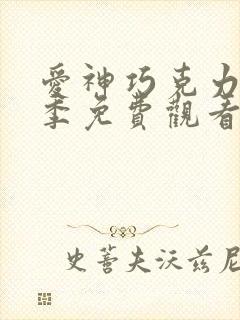 愛神巧克力
季免費觀看
史蒂夫沃茲尼